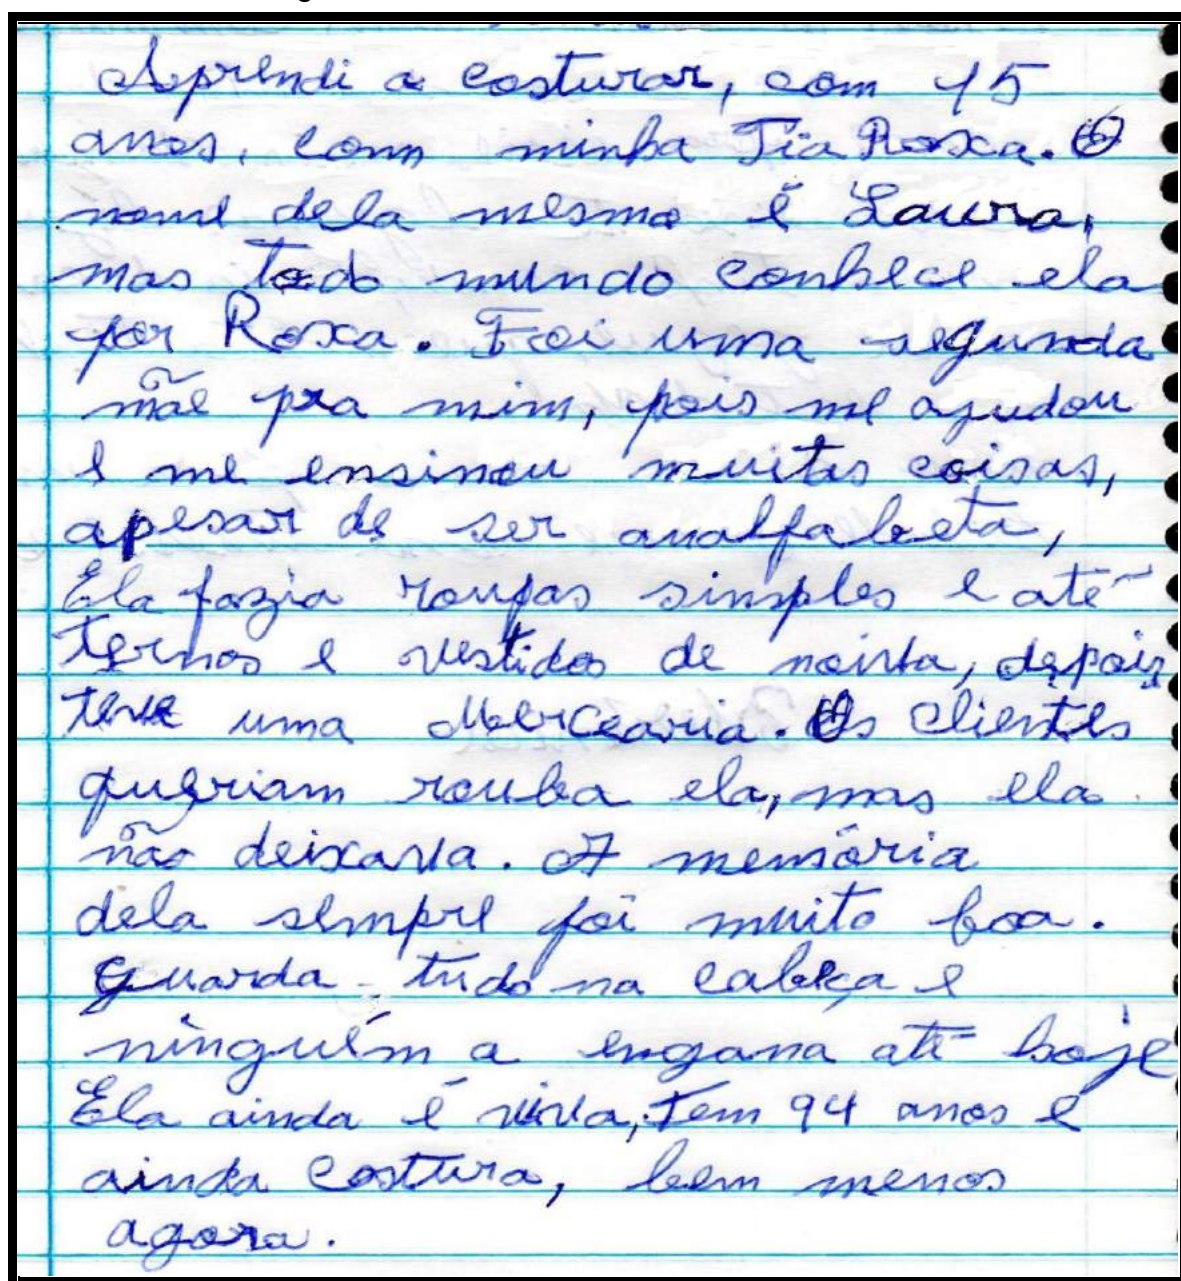 Aprendi a costurar, com 15
anos, com minha Tia Roxa. O
nome dela mesmo é Laura,
mas todo mundo conhece ela
por Roxa. Foi uma segunda
mãe pra mim, pois me ajudou
e me ensinou muitas coisas,
apesar de ser analfabeta,
Ela fazia roupas simples e até
ternos e vestidos de noiva, depois
teve uma Mercearia. Os clientes
queriam rouba ela, mas ela
não deixava. A memória
dela sempre foi muito boa.
Guarda tudo na cabeça e
ninguém a engana até hoje
Ela ainda é viva, tem 94 anos e
ainda costura, bem menos
agora.